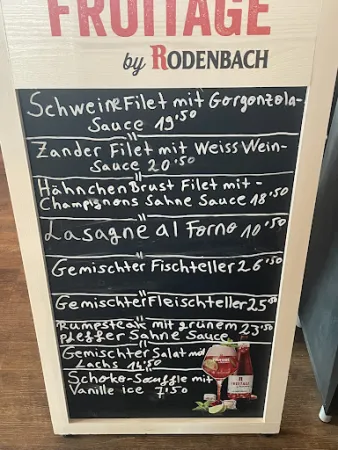 FRUITAGE
by RODENBACH
Schweine Filet mit Gorgonzola-
Sauce 19'50
Zander Filet mit Weiss Wein-
Sauce 20'50
Hähnchen Brust Filet mit -
Champignons Sahne Sauce 18'50
Lasagne al Forno 10'50
Gemischter Fischteller 26'50
Gemischter Fleischteller 25'50
Rumpsteak mit grünem 23'50
pfeffer Sahne Sauce
Gemischter Salat mit
Lachs 14'50
Schoko-Souffle mit
Vanille ice 7'50
FRUITAGE